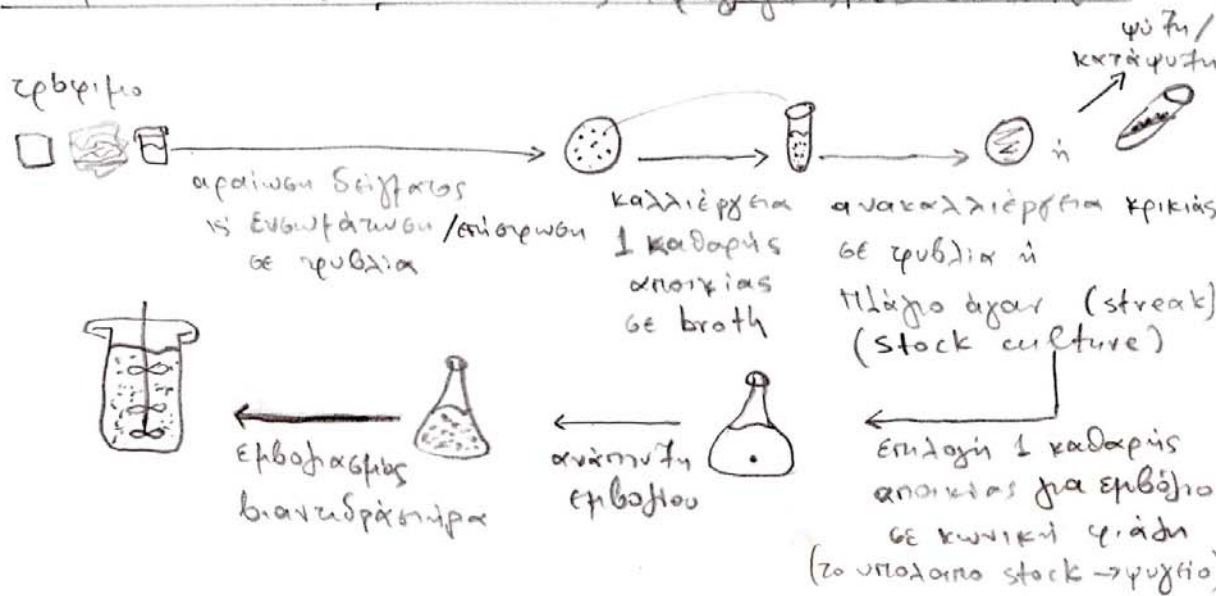 τρόφιμο
αραίωση δείγματος
κ' ενσωμάτωση / επίστρωση
σε τρυβλία
καλλιέργεια
1 καθαρής
αποικίας
σε broth
ψύξη /
κατάψυξη
ή
ανακαλλιέργεια κρικιάς
σε τρυβλία ή
πλάγιο άγαρ (streak)
(stock culture)
επιλογή 1 καθαρής
αποικίας για εμβόλιο
σε κωνική φιάλη
(το υπόλοιπο stock → ψυγείο)
ανάπτυξη
εμβολίου
εμβολιασμός
βιοαντιδραστήρα